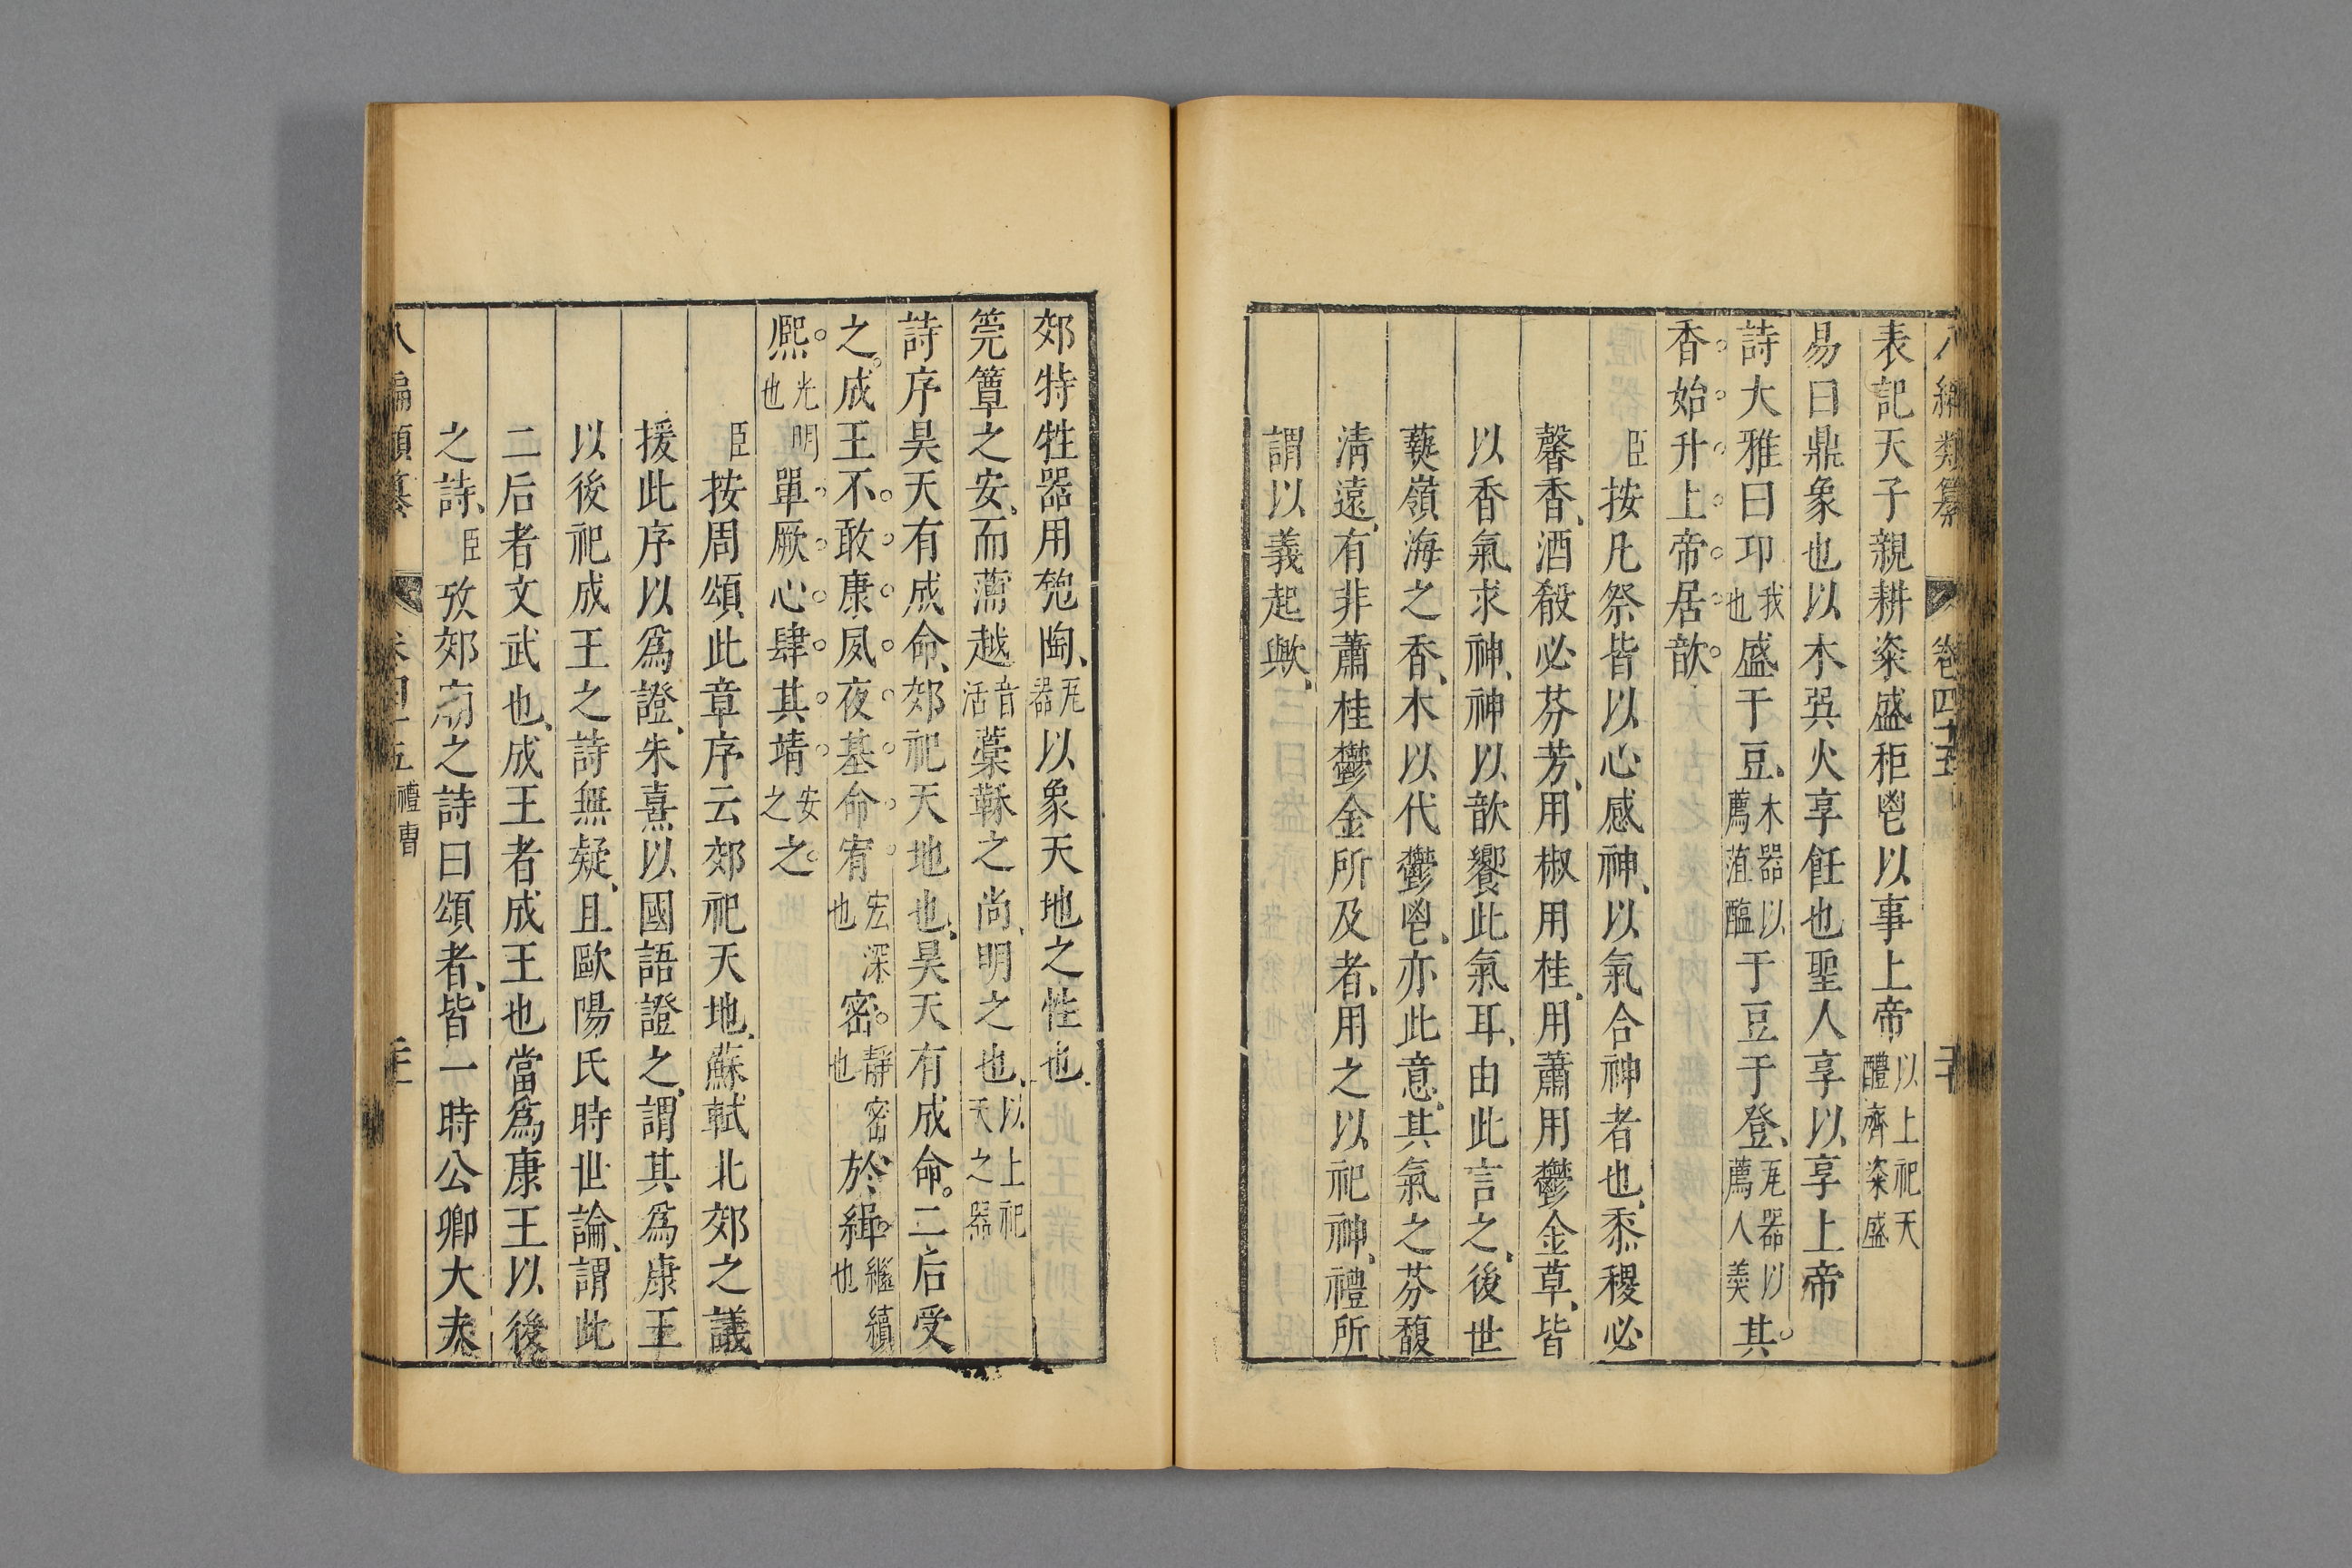 八編類纂 卷四十五
表記天子親耕粢盛秬鬯以事上帝以上祀天醴齊粢盛
易曰鼎象也以木巽火享飪也聖人亨以享上帝
詩大雅曰卬我也盛于豆木器以薦菹醢于豆于登瓦器以薦大羹其
香始升上帝居歆
臣按凡祭皆以心感神以氣合神者也黍稷必
馨香酒殽必芬芳用椒用桂用蕭用鬱金草皆
以香氣求神神以歆饗此氣耳由此言之後世
爇嶺海之香木以代鬱鬯亦此意其氣之芬馥
清遠有非蕭桂鬱金所及者用之以祀神禮所
謂以義起歟
郊特牲器用匏陶瓦器以象天地之性也
筦簟之安而蒲越音活藁鞂之尚明之也以上祀天之器
詩序昊天有成命郊祀天地也昊天有成命二后受
之成王不敢康夙夜基命宥宏深也密靜密也於緝繼續也
熙光明也單厥心肆其靖安之之
臣按周頌此章序云郊祀天地蘇軾北郊之議
援此序以爲證朱熹以國語證之謂其爲康王
以後祀成王之詩無疑且歐陽氏時世論謂此
二后者文武也成王者成王也當爲康王以後
之詩臣攷郊廟之詩曰頌者皆一時公卿大夫
八編類纂 卷四十五 禮曹